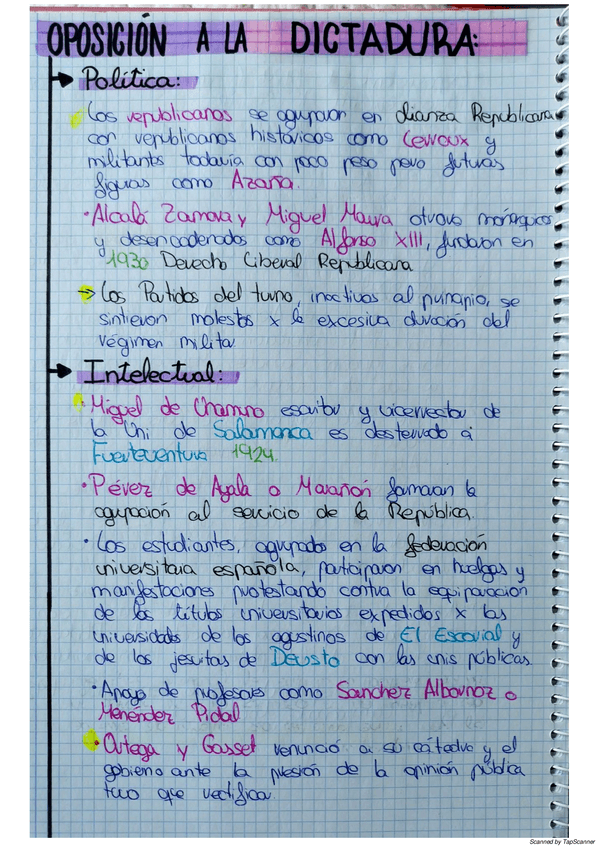 OPOSICIÓN A LA DICTADURA:
→ Política:
Los republicanos se agrupavon en alianza Republicana
con republicanos históricos como Lerroux y
militantes todavía con poco peso pero futuras
figuras como Azaña.
· Alcalá Zamora y Miguel Maura otrora monárquicos
y desencadenados como Alfonso XIII, fundaron en
1930 Derecho Liberal Republicana
→ Los Partidos del turno, inactivos al principio, se
sintieron molestos x la excesiva duración del
régimen militar
→ Intelectual:
· Miguel de Unamuno escritor y vicerrector de
la Uni de Salamanca es desterrado a
Fuerteventura 1924.
· Pérez de Ayala o Marañón formaron la
agrupación al servicio de la República.
· Los estudiantes, agrupados en la federación
universitaria española, participaron en huelgas y
manifestaciones protestando contra la equiparación
de los títulos universitarios expedidos x las
universidades de los agustinos de El Escorial y
de los jesuitas de Deusto con las unis públicas.
· Apoyo de profesores como Sanchez Albornoz o
Menéndez Pidal
· Ortega y Gasset renunció a su cátedra y el
gobierno ante la presión de la opinión pública
tuvo que rectificar.
Scanned by TapScanner